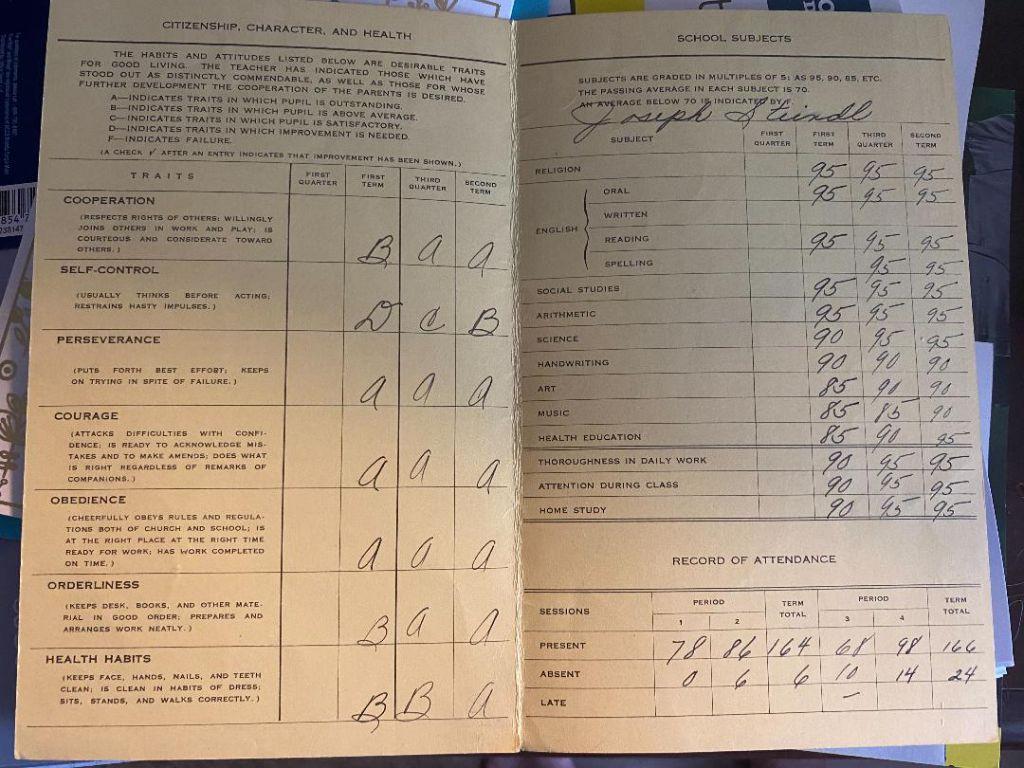 CITIZENSHIP, CHARACTER, AND HEALTH
THE HABITS AND ATTITUDES LISTED BELOW ARE DESIRABLE TRAITS
FOR GOOD LIVING. THE TEACHER HAS INDICATED THOSE WHICH HAVE
STOOD OUT AS DISTINCTLY COMMENDABLE, AS WELL AS THOSE FOR WHOSE
FURTHER DEVELOPMENT THE COOPERATION OF THE PARENTS IS DESIRED.
A—INDICATES TRAITS IN WHICH PUPIL IS OUTSTANDING.
B—INDICATES TRAITS IN WHICH PUPIL IS ABOVE AVERAGE.
C—INDICATES TRAITS IN WHICH PUPIL IS SATISFACTORY.
D—INDICATES TRAITS IN WHICH IMPROVEMENT IS NEEDED.
F—INDICATES FAILURE.
(A CHECK ✓ AFTER AN ENTRY INDICATES THAT IMPROVEMENT HAS BEEN SHOWN.)
TRAITS FIRST QUARTER FIRST TERM THIRD QUARTER SECOND TERM
COOPERATION
(RESPECTS RIGHTS OF OTHERS; WILLINGLY
JOINS OTHERS IN WORK AND PLAY; IS
COURTEOUS AND CONSIDERATE TOWARD
OTHERS.) B a a
SELF-CONTROL
(USUALLY THINKS BEFORE ACTING;
RESTRAINS HASTY IMPULSES.) D C B
PERSEVERANCE
(PUTS FORTH BEST EFFORT; KEEPS
ON TRYING IN SPITE OF FAILURE.) a a a
COURAGE
(ATTACKS DIFFICULTIES WITH CONFI-
DENCE; IS READY TO ACKNOWLEDGE MIS-
TAKES AND TO MAKE AMENDS; DOES WHAT
IS RIGHT REGARDLESS OF REMARKS OF
COMPANIONS.) a a a
OBEDIENCE
(CHEERFULLY OBEYS RULES AND REGULA-
TIONS BOTH OF CHURCH AND SCHOOL; IS
AT THE RIGHT PLACE AT THE RIGHT TIME
READY FOR WORK; HAS WORK COMPLETED
ON TIME.) a a a
ORDERLINESS
(KEEPS DESK, BOOKS, AND OTHER MATE-
RIAL IN GOOD ORDER; PREPARES AND
ARRANGES WORK NEATLY.) B a a
HEALTH HABITS
(KEEPS FACE, HANDS, NAILS, AND TEETH
CLEAN; IS CLEAN IN HABITS OF DRESS;
SITS, STANDS, AND WALKS CORRECTLY.) B B a
SCHOOL SUBJECTS
SUBJECTS ARE GRADED IN MULTIPLES OF 5; AS 95, 90, 85, ETC.
THE PASSING AVERAGE IN EACH SUBJECT IS 70.
AN AVERAGE BELOW 70 IS INDICATED BY F.
Joseph Steindl
SUBJECT FIRST QUARTER FIRST TERM THIRD QUARTER SECOND TERM
RELIGION 95 95 95
ENGLISH
ORAL 95 95 95
WRITTEN
READING 95 95 95
SPELLING 95 95
SOCIAL STUDIES 95 95 95
ARITHMETIC 95 95 95
SCIENCE 90 95 95
HANDWRITING 90 90 90
ART 85 90 90
MUSIC 85 85 90
HEALTH EDUCATION 85 90 95
THOROUGHNESS IN DAILY WORK 90 95 95
ATTENTION DURING CLASS 90 95 95
HOME STUDY 90 95 95
RECORD OF ATTENDANCE
SESSIONS PERIOD 1 2 TERM TOTAL PERIOD 3 4 TERM TOTAL
PRESENT 78 86 164 68 98 166
ABSENT 0 6 6 10 14 24
LATE —